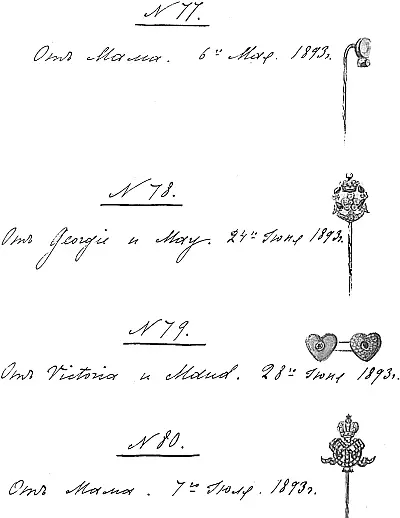 N 77.
Отъ Мама. 6го Мая. 1893г.
N 78.
Отъ Georgie и May. 24го Іюня 1893г.
N 79.
Отъ Victoria и Maud. 28го Іюня 1893г.
N 80.
Отъ Мама. 7го Іюля. 1893г.